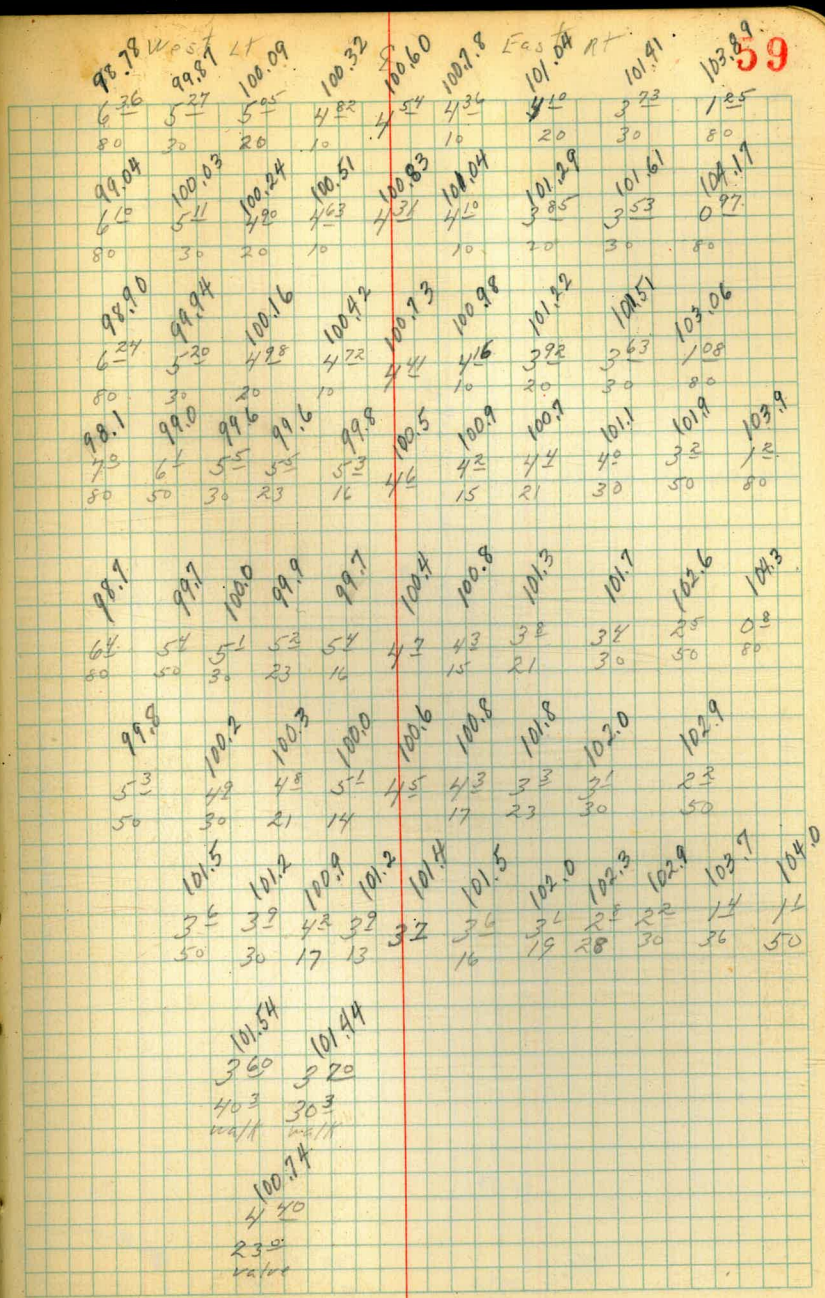 West Lt ℄ East Rt 59
98.78 99.87 100.09 100.32 100.60 100.78 101.04 101.41 103.89
6 36 5 27 5 05 4 82 4 54 4 36 4 10 3 73 1 25
80 30 20 10 10 20 30 80
99.04 100.03 100.24 100.51 100.83 101.04 101.29 101.61 104.17
6 10 5 11 4 90 4 63 4 31 4 10 3 85 3 53 0 97
80 30 20 10 10 20 30 80
98.90 99.94 100.16 100.42 100.73 100.98 101.22 101.51 103.06
6 24 5 20 4 98 4 72 4 41 4 16 3 92 3 63 1 08
80 30 20 10 10 20 30 80
98.1 99.0 99.6 99.6 99.8 100.5 100.9 100.7 101.1 101.9 103.9
7 0 6 1 5 5 5 5 5 3 4 6 4 2 4 4 4 0 3 2 1 2
80 50 30 23 16 15 21 30 50 80
98.7 99.7 100.0 99.9 99.7 100.4 100.8 101.3 101.7 102.6 104.3
6 4 5 4 5 1 5 2 5 4 4 7 4 3 3 8 3 4 2 5 0 8
80 50 30 23 16 15 21 30 50 80
99.8 100.2 100.3 100.0 100.6 100.8 101.8 102.0 102.9
5 3 4 9 4 8 5 1 4 5 4 3 3 3 3 1 2 2
50 30 21 14 17 23 30 50
101.5 101.2 100.9 101.2 101.4 101.5 102.0 102.3 102.9 103.7 104.0
3 6 3 9 4 2 3 9 3 7 3 6 3 1 2 8 2 2 1 4 1 1
50 30 17 13 16 19 28 30 36 50
101.54 101.44
3 60 3 70
40 3 30 3
walk walk
100.74
4 40
23 0
valve